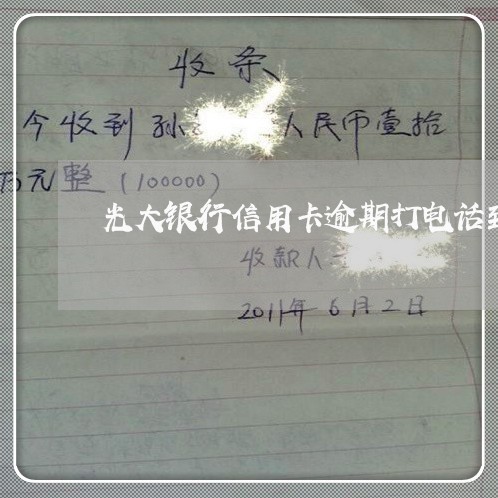 收条
今收到孙 人民币壹拾
万元整(100000)
光大银行信用卡逾期打电话
收款人
2011年6月2日